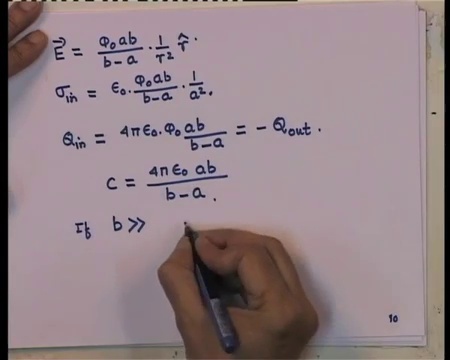 E⃗ = φ₀ab/(b-a) · 1/r² r̂.
σin = ε₀. φ₀ab/(b-a) · 1/a².
Qin = 4πε₀. φ₀ ab/(b-a) = - Qout.
C = 4πε₀ ab/(b-a).
If b >>
10